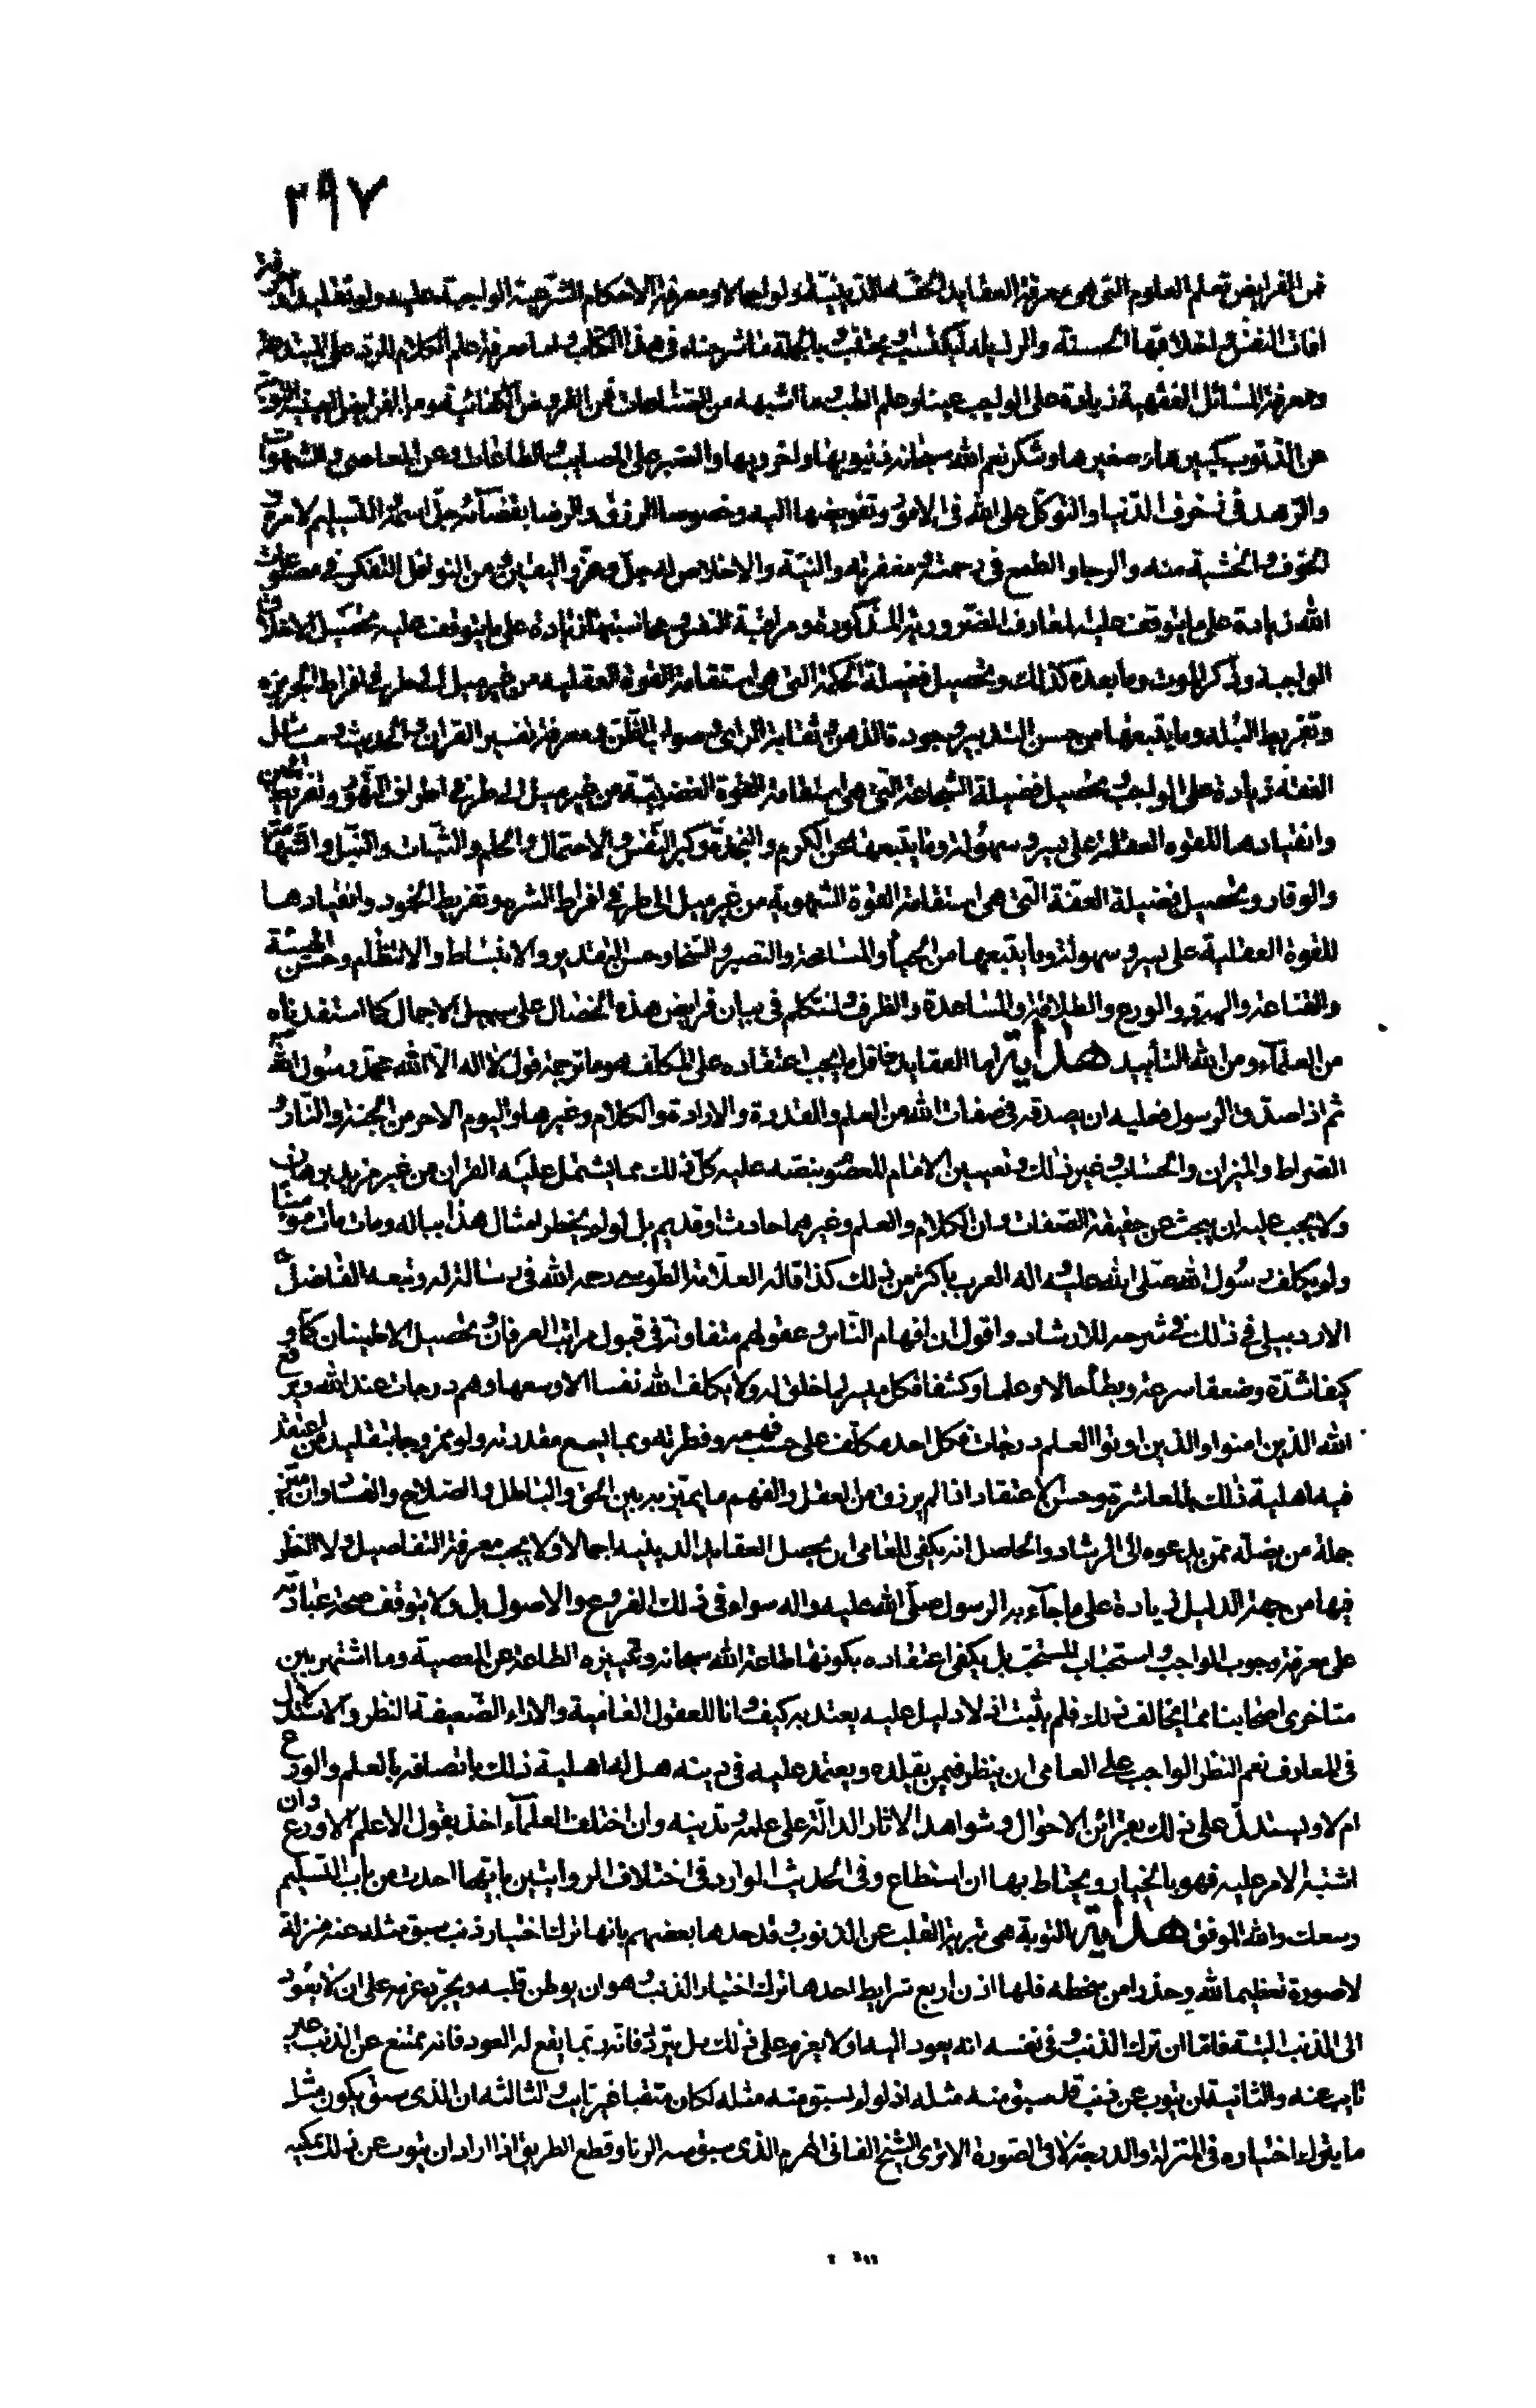 ٢٩٧
فمن الفرايض تعلم العلوم التي هي معرفة العقايد الحقة الدينية ولو اجمالا ومعرفة الاحكام الشرعية الواجبة عليه ولو تقليدا ومعرفة
افات النفس واخلاقها الحسنة والرذيلة ليكتسب ويجتنب بالجملة ما شرحناه في هذا الكتاب واما معرفة علم الكلام للرد على المبتدعة
ومعرفة المسائل الفقهية زيادة على الواجب عينا وعلم الطب وما اشبهه من الصناعات فمن الفروض الكفائية ومن الفرايض العينية التوبة
عن الذنوب كبيرها وصغيرها وشكر نعم الله سبحانه دنيويها واخرويها والصبر على المصايب والطاعات وعن المعاصي والشهوات
والزهد في زخرف الدنيا والتوكل على الله في الامور وتفويضها اليه وخصوصا الرزق والرضا بقضائه جل اسمه والتسليم لامره و
الخوف والخشية منه والرجا والطمع في رحمته ومغفرته والنية والاخلاص له جل وعز واليقين ومن النوافل التفكر في مصنوعات
الله زيادة على ما يتوقف عليه المعارف الضرورية المذكورة ومراقبة النفس ومحاسبتها زيادة على ما يتوقف عليه تحصيل الاخلاق
الواجبة وذكر الموت وما بعده كذلك وتحصيل فضيلة الحكمة التي هي استقامة القوة العقلية من غير ميل الى طرفي افراط الجربزه
وتفريط البله وما يتبعها من حسن التدبير وجودة الذهن وثقابة الراي وصواب الظن ومعرفة تفسير القران والحديث ومسائل
الفقه زيادة على الواجب وتحصيل فضيلة الشجاعة التي هي استقامة القوة الغضبية من غير ميل الى طرفي افراط التهور وتفريط الجبن
وانقيادها للقوة العقلية على يسر وسهولة وما يتبعها من الكرم والنجدة وكبر النفس والاحتمال والحلم والثبات والنبل والشهامة
والوقار وتحصيل فضيلة العفة التي هي استقامة القوة الشهوية من غير ميل الى طرفي افراط الشره وتفريط الخمود وانقيادها
للقوة العقلية على يسر وسهولة وما يتبعها من الحيا والمسامحة والصبر والسخا وحسن التقدير والانبساط والانتظام وحسن الهيئة
والقناعة والهدو والورع والطلاقة والمساعدة والظرف ولنتكلم في بيان فرايض هذه الخصال على سبيل الاجمال كما استفدناه
من العلماء ومن الله التأييد هداية اما العقايد فاقل ما يجب اعتقاده على المكلف هو ما ترجمة قول لا اله الا الله محمد رسول الله
ثم اذا صدق الرسول فعليه ان يصدقه في صفات الله من العلم والقدرة والارادة والكلام وغيرها واليوم الاخر من الجنة والنار و
الصراط والميزان والحساب وغير ذلك وتعيين الامام المعصوم بنصه عليه كل ذلك مما يشتمل عليه القران من غير مزيد برهان
ولا يجب عليه ان يبحث عن حقيقة الصفات وان الكلام والعلم وغيرهما حادث او قديم بل لو لم يخطر امثال هذا بباله ومات مات مؤمنا
ولم يكلف رسول الله صلى الله عليه واله العرب باكثر من ذلك كذا قاله العلامة الطوسي رحمه الله في رسالة له وتبعه الفاضل
الاردبيلي في ذلك في شرحه للارشاد واقول ان افهام الناس وعقولهم متفاوتة في قبول مراتب العرفان وتحصيل الاطمينان كما و
كيفا شدة وضعفا سرعة وبطأ حالا وعلما وكشفا فكل ميسر لما خلق له ولا يكلف الله نفسا الا وسعها وهم درجات عند الله ويرفع
الله الذين امنوا والذين اوتوا العلم درجات فكل احد مكلف على حسب فهمه وفطرته وبما يسع مقدرته ولو ممزوجا بتقليد من اعتقد
فيه اهلية ذلك بالمعاشرة وحسن الاعتقاد اذا لم يرزق من العقل والفهم ما يميز به بين الحق والباطل والصلاح والفساد وان ميز
جملة من يضله ممن يدعوه الى الرشاد والحاصل انه يكفي للعامي ان يحصل العقايد الدينيه اجمالا ولا يجب معرفة التفاصيل ولا النظر
فيها من جهة الدليل زيادة على ما جاء به الرسول صلى الله عليه واله سواء في ذلك الفروع والاصول بل ولا يتوقف صحة عباداته
على معرفة وجوب الواجب واستحباب المستحب بل يكفي اعتقاده بكونها طاعة الله سبحانه وتمييزه الطاعة عن المعصية وما اشتهر بين
متاخري اصحابنا مما يخالف ذلك فلم يثبت اذ لا دليل عليه يعتد به كيف وانا للعقول العامية والاراء الضعيفة النظر والاستدلال
في المعارف نعم النظر الواجب على العامي ان ينظر فيمن يقلده ويعتمد عليه في دينه هل له اهلية ذلك باتصافه بالعلم والورع
ام لا ويستدل على ذلك بقرائن الاحوال وشواهد الاثار الدالة على علمه وتدينه وان اختلف العلماء اخذ بقول الاعلم الاورع وان
اشتبه الامر عليه فهو بالخيار ويحتاط بها ان استطاع وفي الحديث الوارد في اختلاف الروايتين بايهما اخذت من باب التسليم
وسعك والله الموفق هداية التوبة هي تبرئة القلب عن الذنوب وقد حدها بعضهم بانها ترك اختيار ذنب سبق مثله عنه منزلة
لا صورة تعظيما لله وحذرا من سخطه فلها اذن اربع شرايط احدها ترك اختيار الذنب وهو ان يوطن قلبه ويجرد عزمه على ان لا يعود
الى الذنب البتة فاما ان ترك الذنب وفي نفسه انه يعود اليه او لا يعزم على ذلك بل يتردد فانه ربما يقع له العود فانه ممتنع عن الذنب غير
تايب عنه والثانية ان يتوب عن ذنب قد سبق منه مثله اذ لو لم يسبق منه مثله لكان متقيا غير تايب والثالثه ان الذي سبق يكون مثل
ما يترك اختياره في المنزلة والدرجة لا في الصورة الا ترى الشيخ الفاني الهرم الذي سبق منه الزنا وقطع الطريق اذا اراد ان يتوب عن ذلك يمكنه